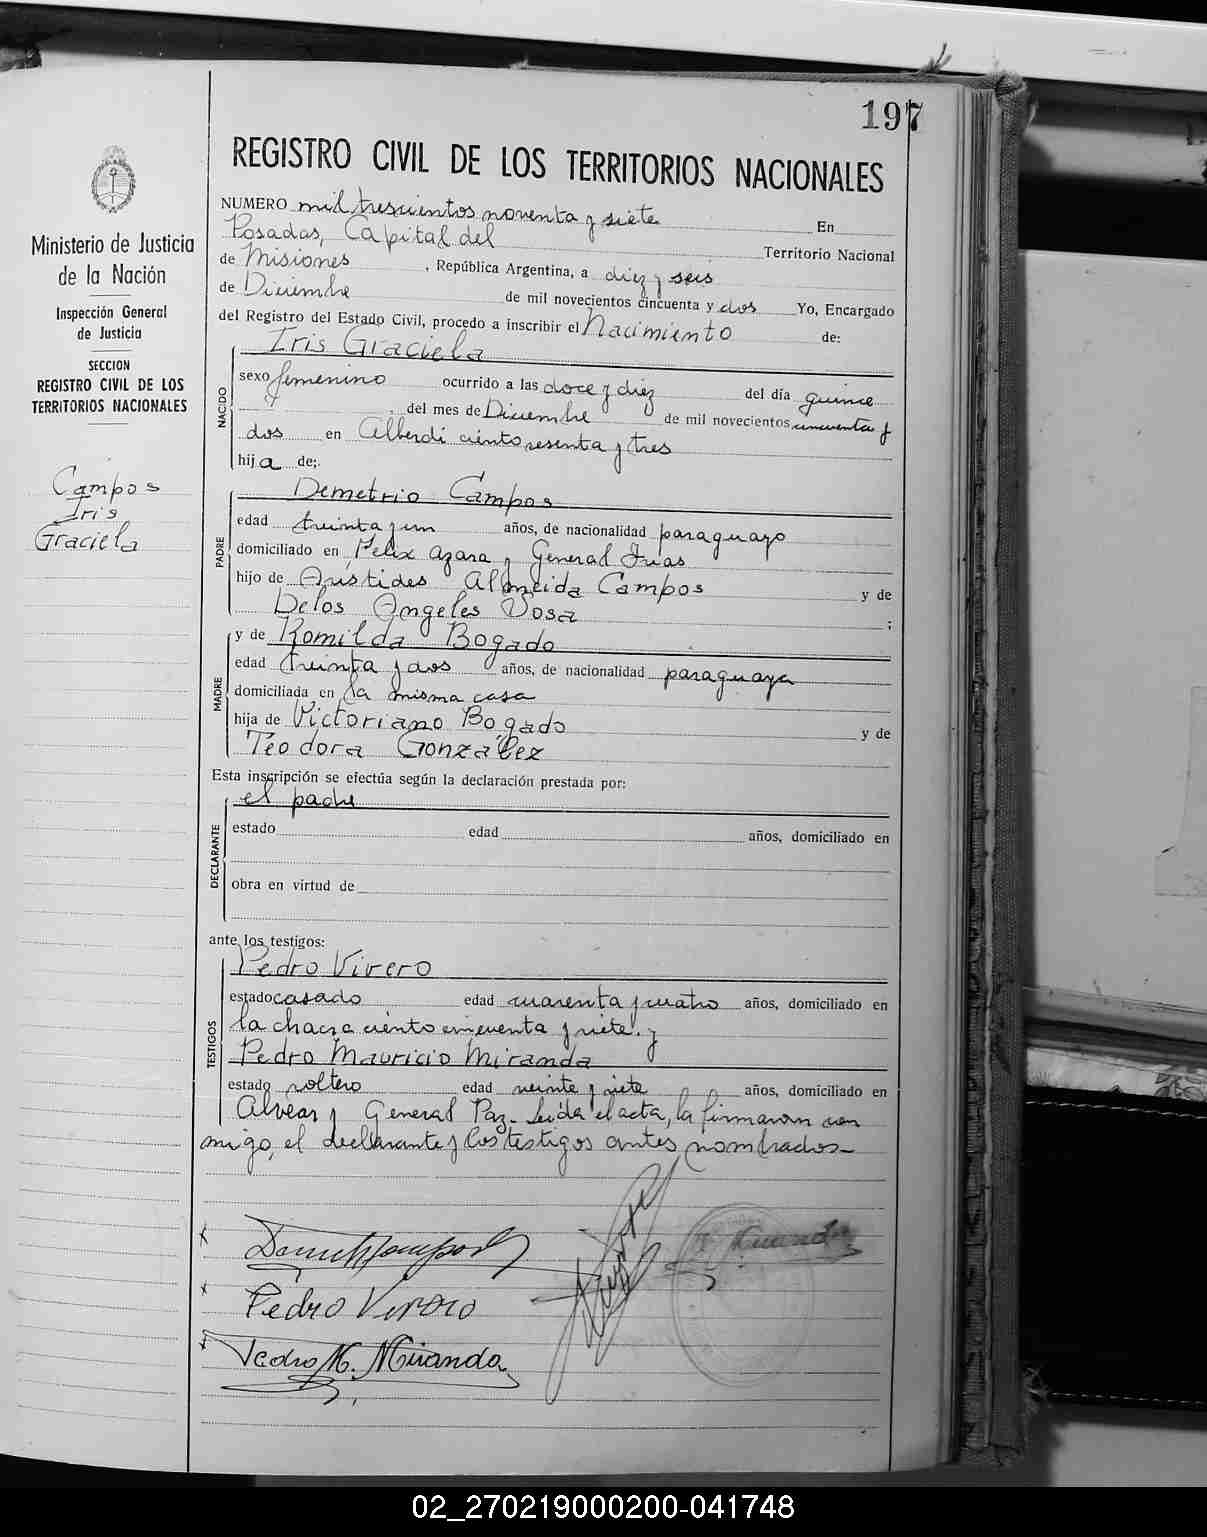 197
REGISTRO CIVIL DE LOS TERRITORIOS NACIONALES
Ministerio de Justicia
de la Nación
Inspección General
de Justicia
SECCION
REGISTRO CIVIL DE LOS
TERRITORIOS NACIONALES
Campos
Iris
Graciela
NUMERO mil trescientos noventa y siete En
Posadas, Capital del Territorio Nacional
de Misiones, República Argentina, a diez y seis
de Diciembre de mil novecientos cincuenta y dos Yo, Encargado
del Registro del Estado Civil, procedo a inscribir el Nacimiento de:
Iris Graciela
NACIDO
sexo femenino ocurrido a las doce y diez del día quince
, del mes de Diciembre de mil novecientos cincuenta y
dos en Alberdi ciento sesenta y tres
hija de:
Demetrio Campos
PADRE
edad treinta y un años, de nacionalidad paraguayo
domiciliado en Felix Azara y General Frias
hijo de Aristides Almeida Campos y de
Delos Angeles Sosa ;
y de Romilda Bogado
MADRE
edad treinta y dos años, de nacionalidad paraguaya
domiciliada en la misma casa
hija de Victoriano Bogado y de
Teodora González
Esta inscripción se efectúa según la declaración prestada por:
el padre
DECLARANTE
estado edad años, domiciliado en
obra en virtud de
ante los testigos:
Pedro Vivero
TESTIGOS
estado casado edad cuarenta y cuatro años, domiciliado en
la chacra ciento cincuenta y siete. y
Pedro Mauricio Miranda
estado soltero edad veinte y siete años, domiciliado en
Alvear y General Paz. Leida el acta, la firmaron con
migo, el declarante y los testigos antes nombrados
Pedro Vivero
Pedro M. Miranda
02_270219000200-041748